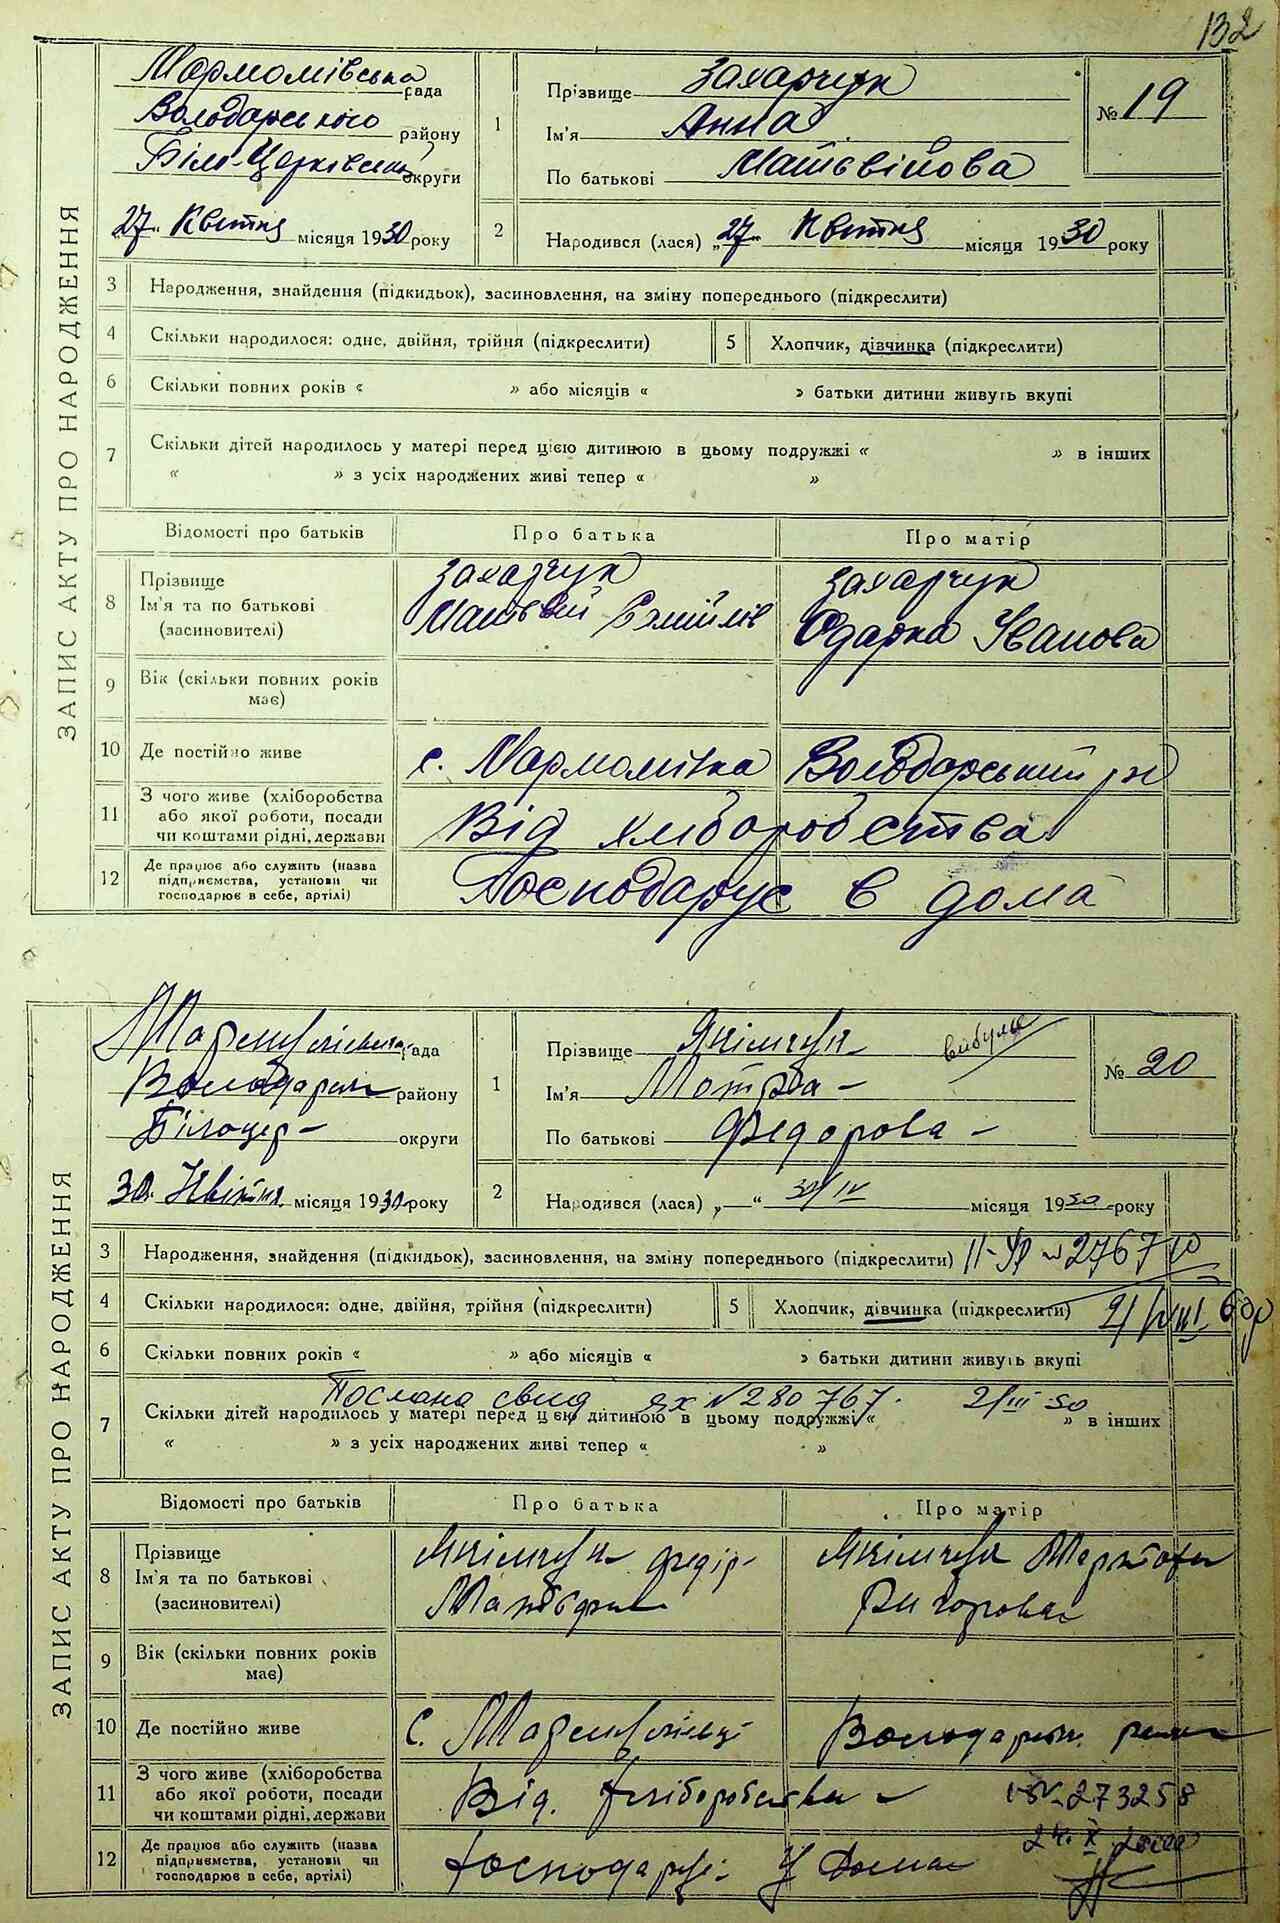 132
ЗАПИС АКТУ ПРО НАРОДЖЕННЯ
Мармолівська рада
Володарського району
Біло-Церківської округи
„27“ Квітня місяця 1930 року
1
Прізвище Захарчук
Ім'я Анна
По батькові Матьвійова
№ 19
2
Народився (лася) „27“ Квітня місяця 1930 року
3 Народження, знайдення (підкидьок), засиновлення, на зміну попереднього (підкреслити)
4 Скільки народилося: одне, двійня, трійня (підкреслити)
5 Хлопчик, дівчинка (підкреслити)
6 Скільки повних років « » або місяців « » батьки дитини живуть вкупі
7 Скільки дітей народилось у матері перед цією дитиною в цьому подружжі « » в інших
« » з усіх народжених живі тепер « »
Відомості про батьків Про батька Про матір
8 Прізвище
Ім'я та по батькові
(засиновителі)
Захарчук
Матьвій
Захарчук
Одарка Іванова
9 Вік (скільки повних років
має)
10 Де постійно живе с. Мармолівка Володарський рн
11 З чого живе (хліборобства
або якої роботи, посади
чи коштами рідні, держави
Від хліборобства
12 Де працює або служить (назва
підприємства, установи чи
господарює в себе, артілі)
Господарує в дома
ЗАПИС АКТУ ПРО НАРОДЖЕННЯ
рада
району
Білоцер- округи
30 Квітня місяця 1930 року
1
Прізвище Якімчук
вибула
Ім'я Мотря
По батькові Федорова
№ 20
2
Народився (лася) „ “ 30/IV місяця 1930 року
3 Народження, знайдення (підкидьок), засиновлення, на зміну попереднього (підкреслити)
4 Скільки народилося: одне, двійня, трійня (підкреслити)
5 Хлопчик, дівчинка (підкреслити)
6 Скільки повних років « » або місяців « » батьки дитини живуть вкупі
Послана свид № 280767.
7 Скільки дітей народилось у матері перед цією дитиною в цьому подружжі « » в інших
« » з усіх народжених живі тепер « »
Відомості про батьків Про батька Про матір
8 Прізвище
Ім'я та по батькові
(засиновителі)
Якімчук Федір
Якімчук
9 Вік (скільки повних років
має)
10 Де постійно живе с.
11 З чого живе (хліборобства
або якої роботи, посади
чи коштами рідні, держави
Від хліборобства
273258
12 Де працює або служить (назва
підприємства, установи чи
господарює в себе, артілі)
Господарує у дома